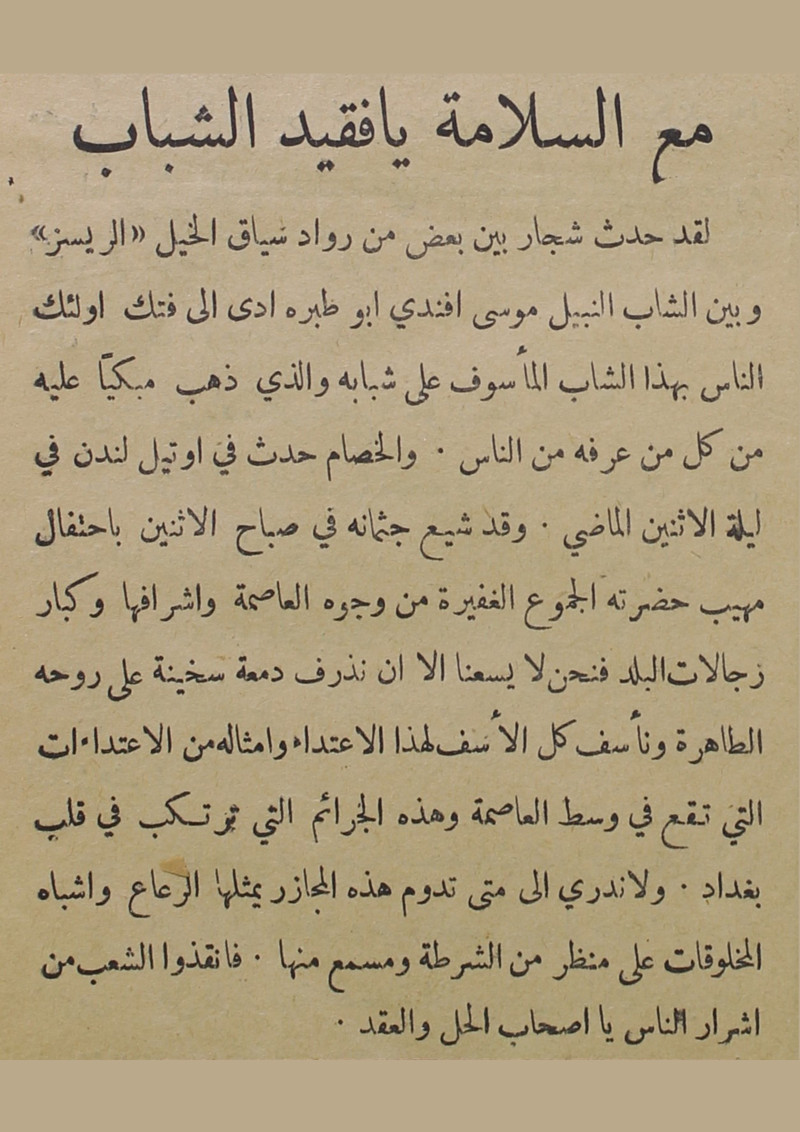 مع السلامة يافقيد الشباب
لقد حدث شجار بين بعض من رواد سياق الخيل «الريسز»
وبين الشاب النبيل موسى افندي ابو طبره ادى الى فتك اولئك
الناس بهذا الشاب المأسوف على شبابه والذي ذهب مبكيًا عليه
من كل من عرفه من الناس . والخصام حدث في اوتيل لندن في
ليلة الاثنين الماضي . وقد شيع جثمانه في صباح الاثنين باحتفال
مهيب حضرته الجموع الغفيرة من وجوه العاصمة واشرافها وكبار
رجالات البلد فنحن لا يسعنا الا ان نذرف دمعة سخينة على روحه
الطاهرة ونأسف كل الأسف لهذا الاعتداء وامثاله من الاعتداءات
التي تقع في وسط العاصمة وهذه الجرائم التي ترتكب في قلب
بغداد . ولاندري الى متى تدوم هذه المجازر يمثلها الرعاع واشباه
المخلوقات على منظر من الشرطة ومسمع منها . فانقذوا الشعب من
اشرار الناس يا اصحاب الحل والعقد .